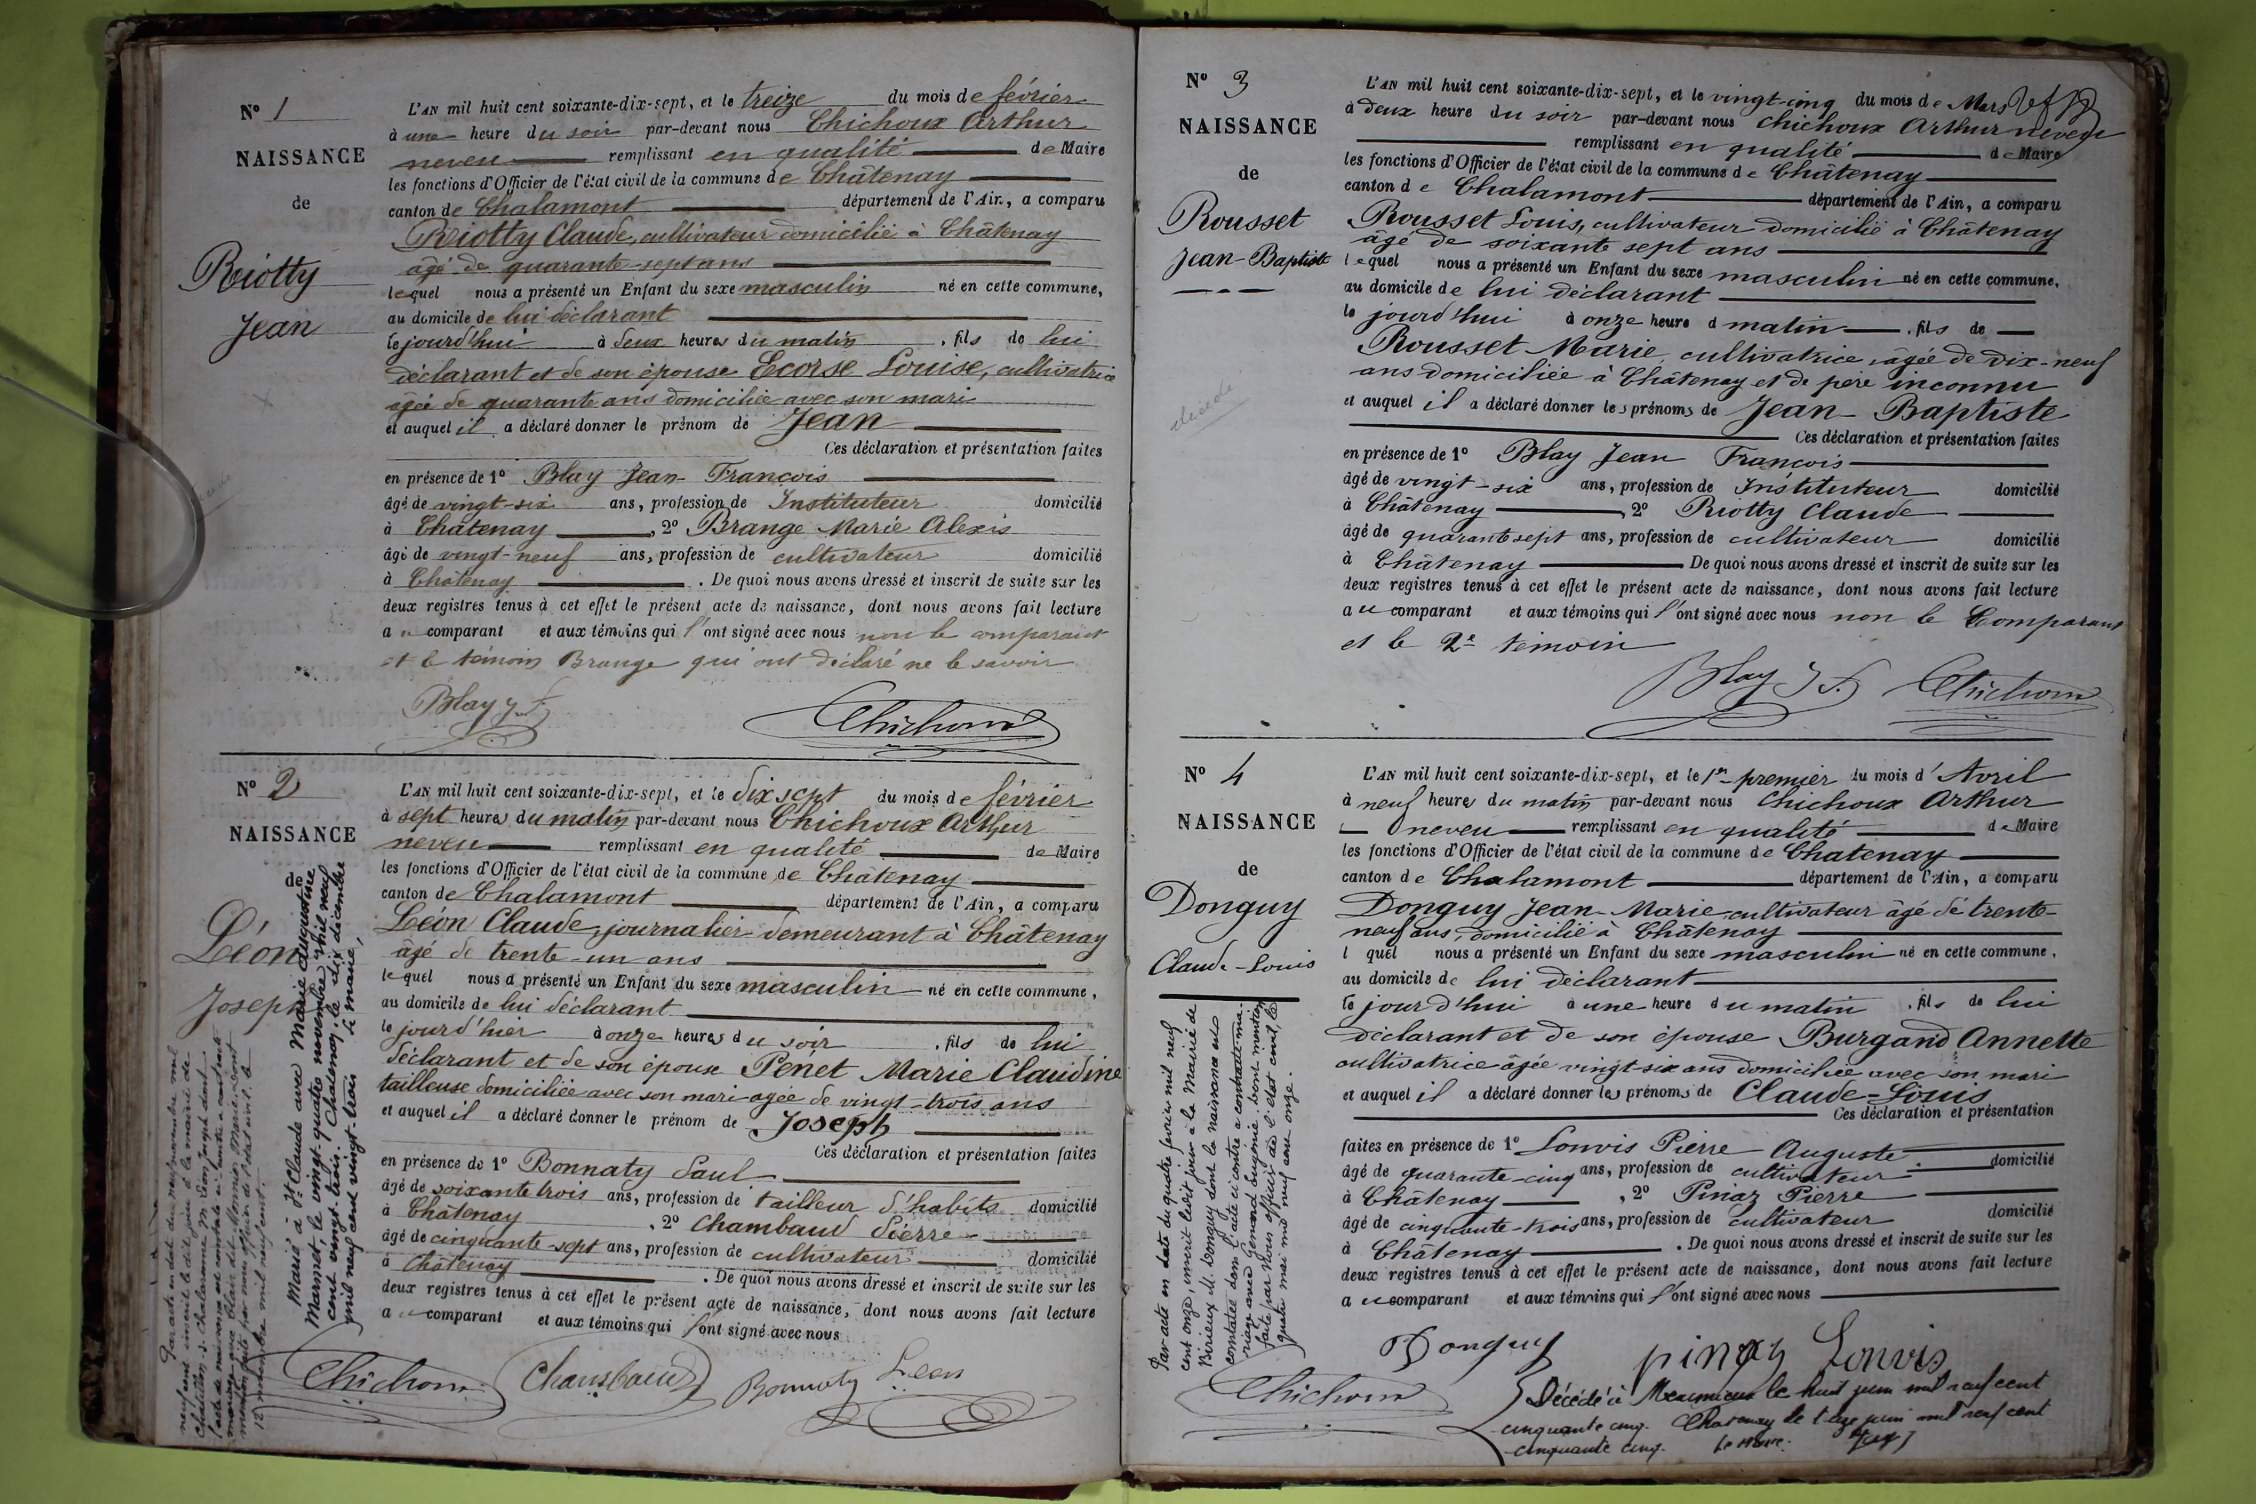 N° 1
NAISSANCE
de
Riotty
Jean
L'AN mil huit cent soixante-dix-sept, et le treize du mois de février
à une heure du soir par-devant nous Chichoux Arthur
neveu remplissant en qualité de Maire
les fonctions d'Officier de l'état civil de la commune de Châtenay
canton de Chalamont département de l'Ain, a comparu
Riotty Claude, cultivateur domicilié à Châtenay
âgé de quarante-sept ans
lequel nous a présenté un Enfant du sexe masculin né en cette commune,
au domicile de lui déclarant
le jourd'hui à deux heures du matin, fils de lui
déclarant et de son épouse Ecorse Louise, cultivatrice
âgée de quarante ans domiciliée avec son mari
et auquel il a déclaré donner le prénom de Jean
Ces déclaration et présentation faites
en présence de 1° Blay Jean François
âgé de vingt-six ans, profession de Instituteur domicilié
à Châtenay, 2° Brange Marie Alexis
âgé de vingt-neuf ans, profession de cultivateur domicilié
à Châtenay. De quoi nous avons dressé et inscrit de suite sur les
deux registres tenus à cet effet le présent acte de naissance, dont nous avons fait lecture
au comparant et aux témoins qui l'ont signé avec nous non le comparant
et le témoin Brange qui ont déclaré ne le savoir
Blay J. F.
Chichoux
N° 2
NAISSANCE
de
Léon
Joseph
L'AN mil huit cent soixante-dix-sept, et le dix sept du mois de février
à sept heures du matin par-devant nous Chichoux Arthur
neveu remplissant en qualité de Maire
les fonctions d'Officier de l'état civil de la commune de Châtenay
canton de Chalamont département de l'Ain, a comparu
Léon Claude, journalier demeurant à Châtenay
âgé de trente-un ans
lequel nous a présenté un Enfant du sexe masculin né en cette commune,
au domicile de lui déclarant
le jourd'hier à onze heures du soir, fils de lui
déclarant et de son épouse Pénet Marie Claudine
tailleuse domiciliée avec son mari agée de vingt-trois ans
et auquel il a déclaré donner le prénom de Joseph
Ces déclaration et présentation faites
en présence de 1° Bonnaty Paul
âgé de soixante trois ans, profession de tailleur d'habits domicilié
à Châtenay, 2° Chambaud Pierre
âgé de cinquante-sept ans, profession de cultivateur domicilié
à Châtenay. De quoi nous avons dressé et inscrit de suite sur les
deux registres tenus à cet effet le présent acte de naissance, dont nous avons fait lecture
au comparant et aux témoins qui l'ont signé avec nous
Chichoux Chambaud Bonnaty Léon
Marié à St Claude avec Marie Augustine
Marmet, le vingt-quatre novembre mil neuf
cent vingt-trois. Chatenay, le dix décembre
mil neuf cent vingt-trois Le maire,
Par acte en date du neuf novembre mil
neuf cent inscrit le dit jour à la mairie de
Châtillon s. Chalaronne M. Léon Joseph dont
l'acte de naissance est constaté ci-contre a contracté
mariage avec
12 novembre mil neuf cent.
N° 3
NAISSANCE
de
Rousset
Jean-Baptiste
décédé
L'AN mil huit cent soixante-dix-sept, et le vingt-cinq du mois de Mars
à deux heure du soir par-devant nous Chichoux Arthur neveu
remplissant en qualité de Maire
les fonctions d'Officier de l'état civil de la commune de Châtenay
canton de Chalamont département de l'Ain, a comparu
Rousset Louis, cultivateur domicilié à Châtenay
âgé de soixante sept ans
lequel nous a présenté un Enfant du sexe masculin né en cette commune,
au domicile de lui déclarant
le jourd'hui à onze heure d matin, fils de
Rousset Marie, cultivatrice, âgée de dix-neuf
ans domiciliée à Châtenay et de père inconnu
et auquel il a déclaré donner les prénoms de Jean-Baptiste
Ces déclaration et présentation faites
en présence de 1° Blay Jean François
âgé de vingt-six ans, profession de Instituteur domicilié
à Châtenay, 2° Riotty Claude
âgé de quarante sept ans, profession de cultivateur domicilié
à Châtenay De quoi nous avons dressé et inscrit de suite sur les
deux registres tenus à cet effet le présent acte de naissance, dont nous avons fait lecture
au comparant et aux témoins qui l'ont signé avec nous non le Comparant
et le 2e témoin
Blay J. F. Chichoux
N° 4
NAISSANCE
de
Donguy
Claude-Louis
L'AN mil huit cent soixante-dix-sept, et le 1er premier du mois d'Avril
à neuf heures du matin par-devant nous Chichoux Arthur
neveu remplissant en qualité de Maire
les fonctions d'Officier de l'état civil de la commune de Chatenay
canton de Chalamont département de l'Ain, a comparu
Donguy Jean-Marie, cultivateur âgé de trente-
neuf ans, domicilié à Châtenay
l quel nous a présenté un Enfant du sexe masculin né en cette commune,
au domicile de lui déclarant
le jour d'hui à une heure du matin, fils de lui
déclarant et de son épouse Burgand Annette
cultivatrice âgée vingt-six ans domiciliée avec son mari
et auquel il a déclaré donner les prénoms de Claude-Louis
Ces déclaration et présentation
faites en présence de 1° Louvis Pierre Auguste
âgé de quarante-cinq ans, profession de cultivateur domicilié
à Châtenay, 2° Pinaz Pierre
âgé de cinquante-trois ans, profession de cultivateur domicilié
à Châtenay. De quoi nous avons dressé et inscrit de suite sur les
deux registres tenus à cet effet le présent acte de naissance, dont nous avons fait lecture
au comparant et aux témoins qui l'ont signé avec nous
Donguy pinaz Louvis
Chichoux
Décédé à Meximieux le huit juin mil neuf cent
cinquante cinq. Chatenay le treize juin mil neuf cent
cinquante cinq. Le Maire:
Par acte en date du quatre février mil neuf
cent onze, inscrit ledit jour à la Mairie de
Birieux M. Donguy dont la naissance est
constatée dans l'acte ci contre a contracté ma-
riage avec Eugénie. Dont mention
faite par Nous officier de l'état civil, le
quatre mai mil neuf cent onze.